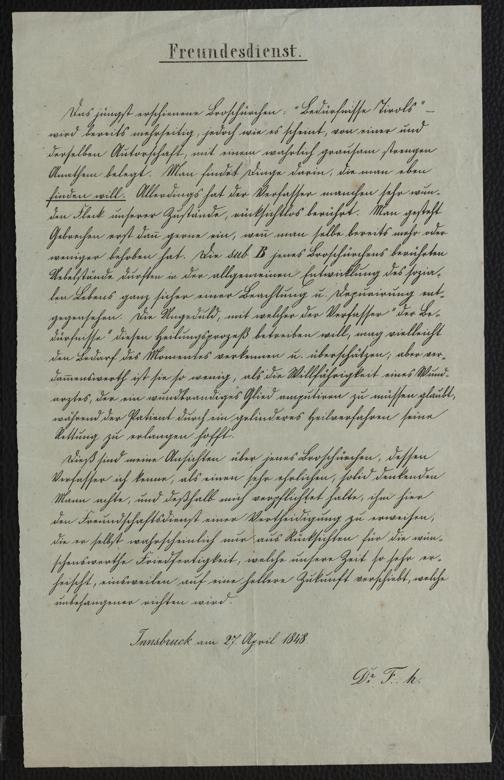 Freundesdienst.
Das jüngst erschienene Broschürchen: "Bedürfnisse Tirols" –
wird bereits mehrseitig, jedoch wie es scheint, von einer und
derselben Autorschaft, mit einem wahrlich grausam strengen
Anathem belegt. Man findet Dinge darin, die man eben
finden will. Allerdings hat der Verfasser manchen sehr wun-
den Fleck unserer Zustände, rücksichtlos berührt. Man gesteht
Gebrechen erst dan̅ gerne ein, wen̅ man selbe bereits mehr oder
weniger behoben hat. Die sub B jenes Broschürchens berührten
Uebelstände durften in der allgemeinen Entwicklung des sozia-
len Lebens ganz sicher einer Beachtung u. Depurirung ent-
gegensehen. Die Ungeduld, mit welcher der Verfasser "der Be-
dürfnisse" diesen Heilungsprozeß betreiben will, mag vielleicht
den Bedarf des Momentes verkennen u. überschätzen, aber ver-
dammenswerth ist sie so wenig, als die Willfährigkeit eines Wund-
arztes, der ein wundbrandiges Glied amputiren zu müssen glaubt,
während der Patient durch ein gelinderes Heilverfahren seine
Rettung zu erlangen hofft.
Dieß sind meine Ansichten über jenes Broschürchen, dessen
Verfasser ich kenne, als einen sehr ehrlichen, solid denkenden
Mann achte, und deßhalb mich verpflichtet halte, ihm hier
den Freundschaftsdienst einer Vertheidigung zu erweisen,
die er selbst wahrscheinlich nur aus Rücksichten für die wün-
schenswerthe Friedfertigkeit, welche unsere Zeit so sehr er-
heischt, einsweilen auf eine hellere Zukunft verschiebt, welche
unbefangener richten wird.
Innsbruck am 27. April 1848
Dr. F. h.